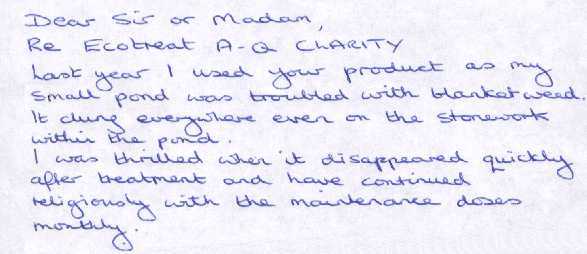 Dear Sir or Madam,
Re Ecotreat A-Q CLARITY
Last year I used your product as my
small pond was troubled with blanket weed.
It clung everywhere even on the stonework
within the pond.
I was thrilled when it disappeared quickly
after treatment and have continued
religiously with the maintenance doses
monthly.